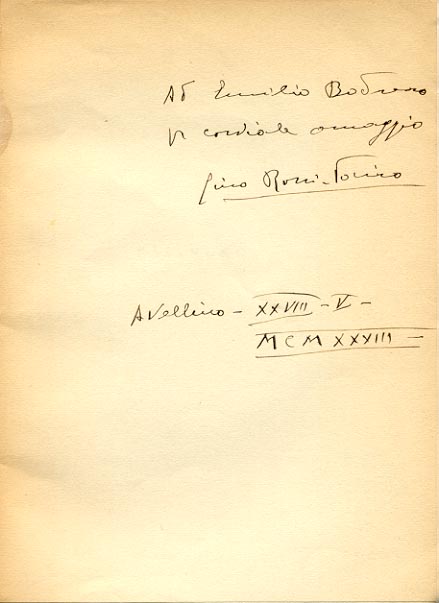 Ad Emilio Bodrero
cordiale omaggio
Gino Rossi-Torino
Avellino - XXVIII - V -
MCMXXXIII -